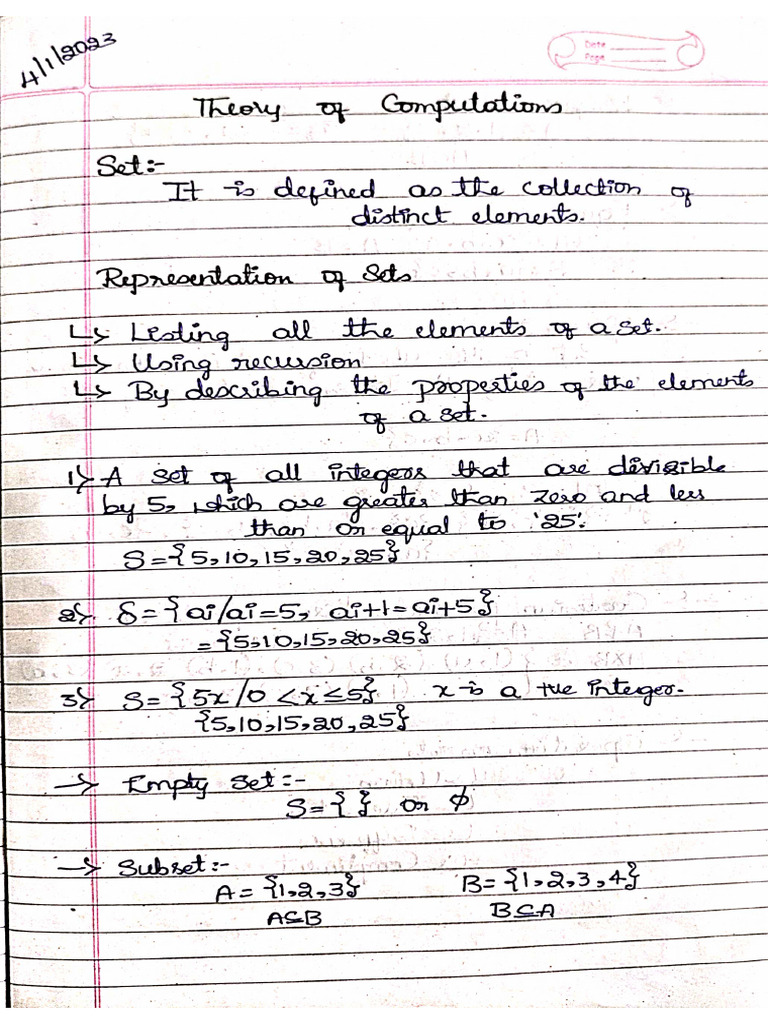 4/1/2023
Date
Page
Theory of Computations
Set:-
It is defined as the collection of
distinct elements.
Representation of Sets
↳ Listing all the elements of a set.
↳ Using recursion
↳ By describing the properties of the elements
of a set.
1) A set of all integers that are divisible
by 5, which are greater than zero and less
than or equal to '25'.
S={5,10,15,20,25}
2) S={ai/ai=5, ai+1=ai+5}
={5,10,15,20,25}
3) S={5x/0<x≤5} x is a +ve integer.
{5,10,15,20,25}
→ Empty set:-
S={ } or ϕ
→ Subset:-
A={1,2,3} B={1,2,3,4}
A⊆B B⊆A